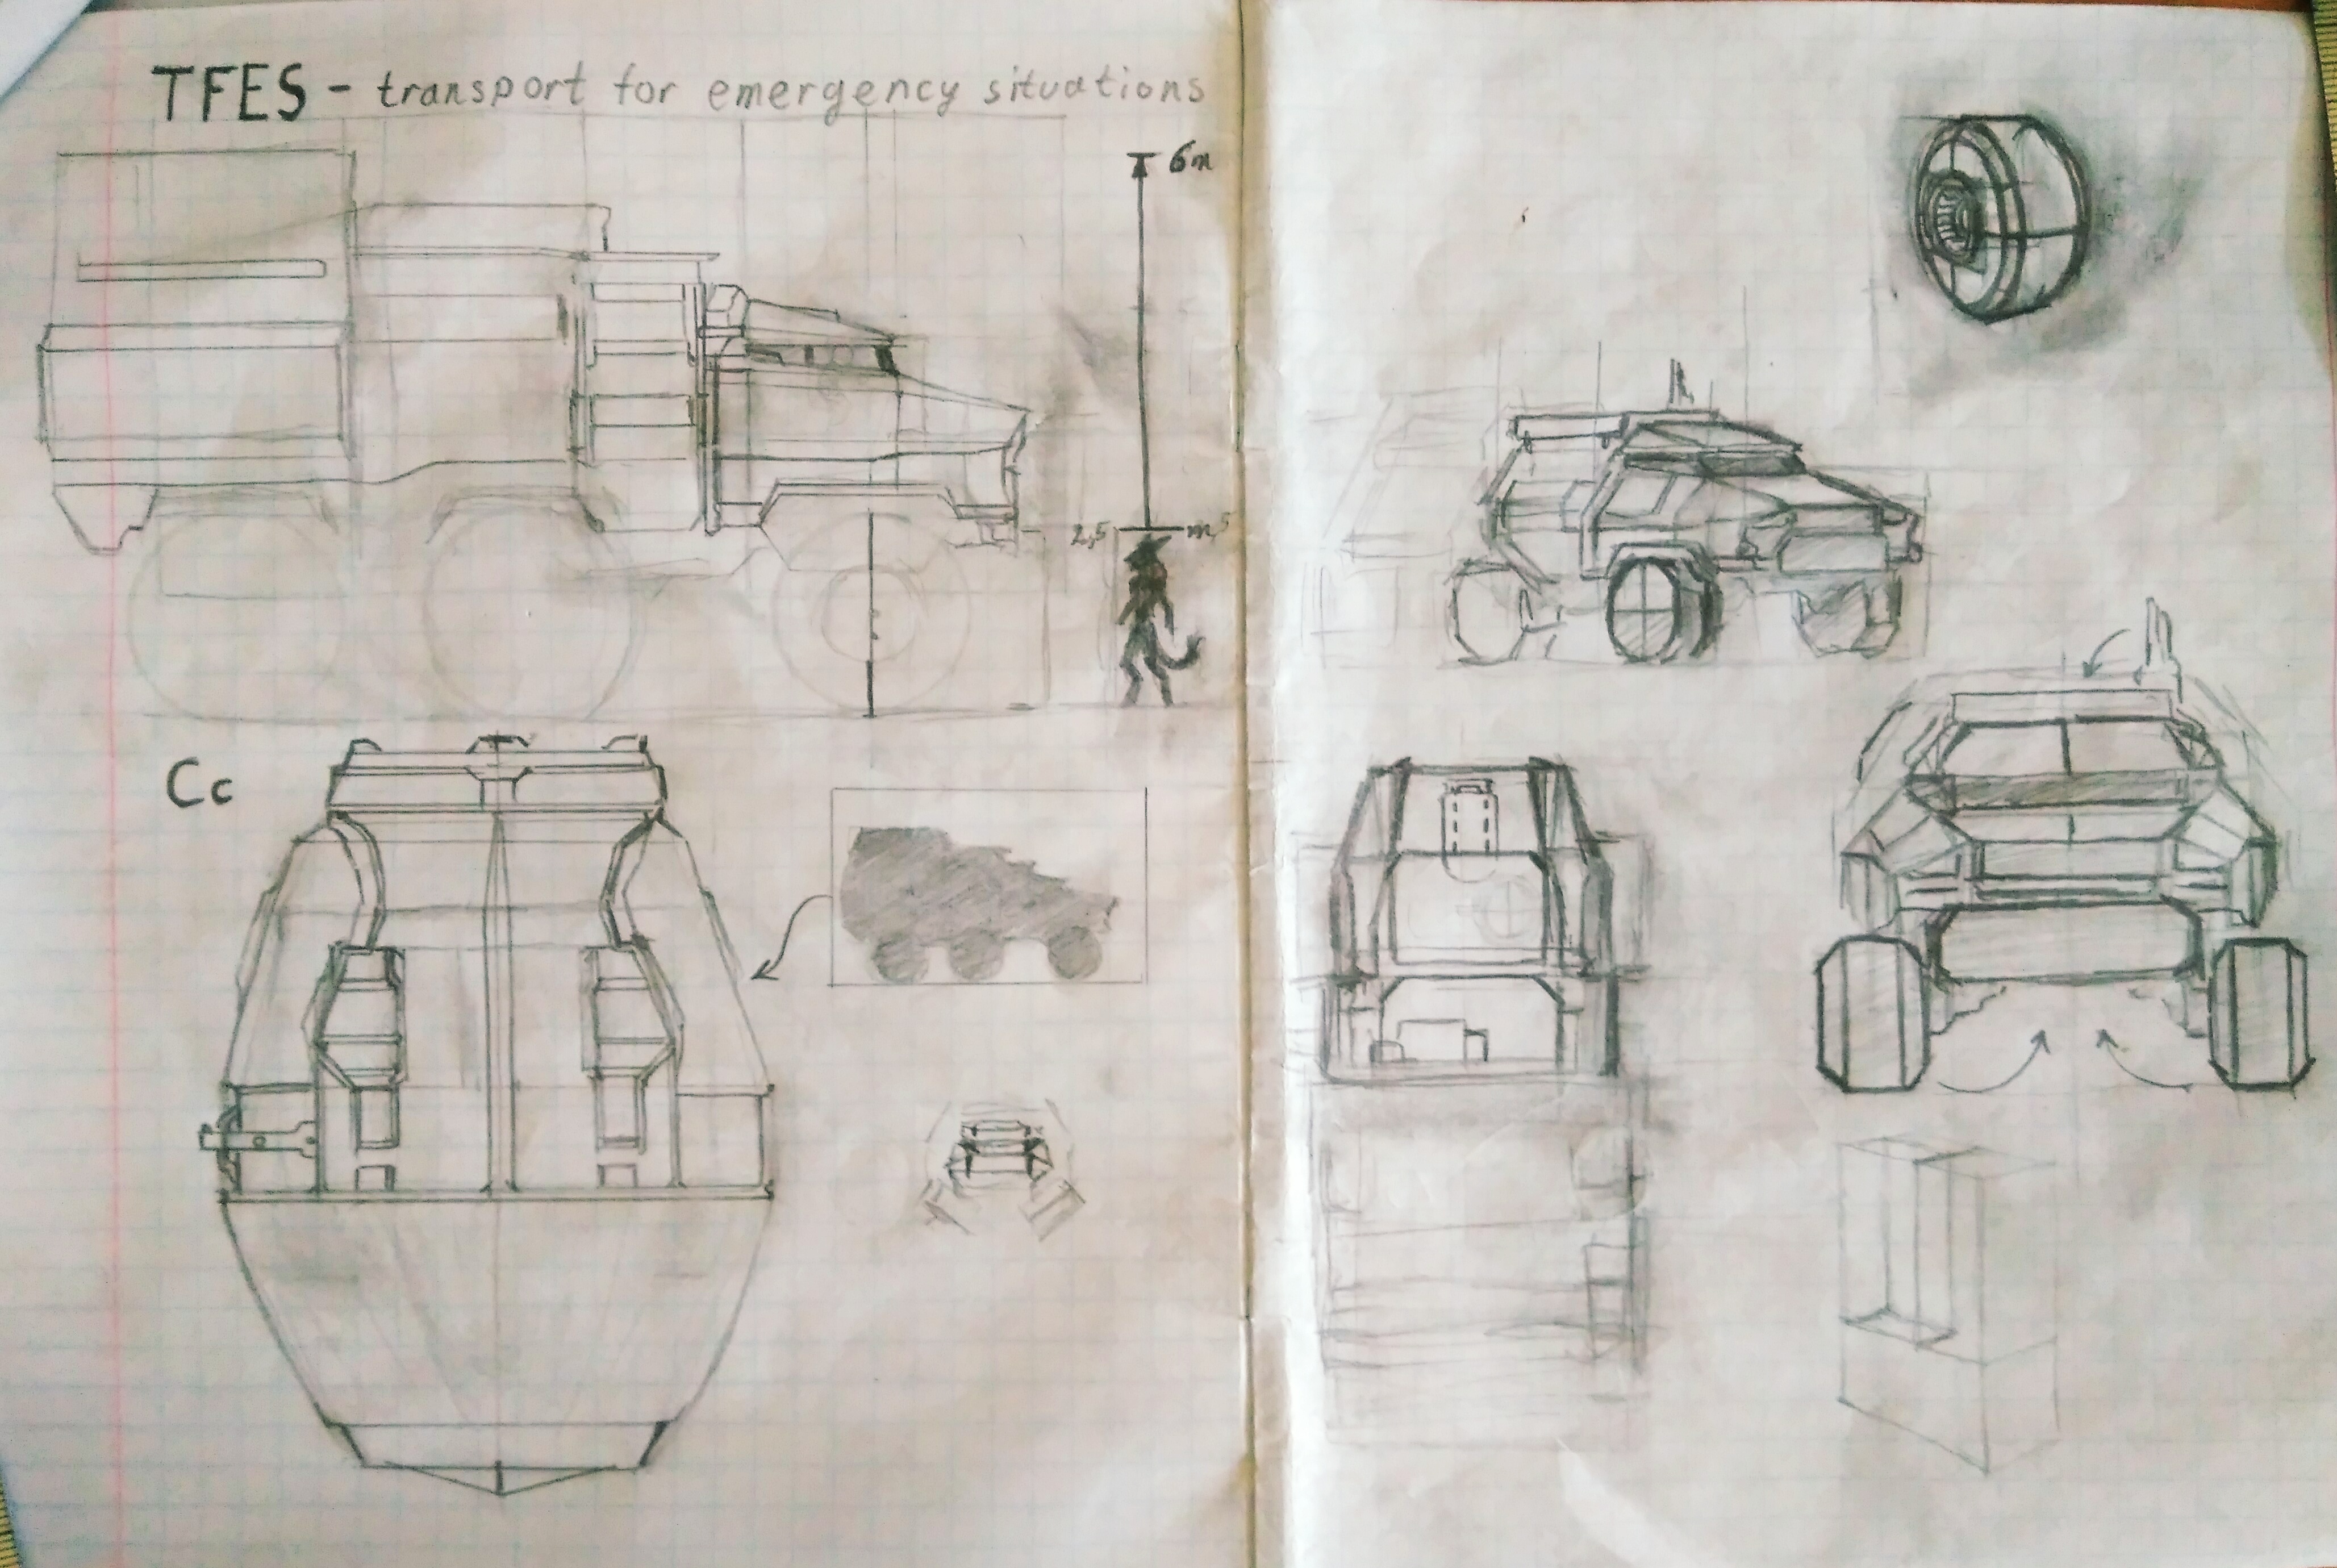 TFES - transport for emergency situations
6m
2,5 m
Cc